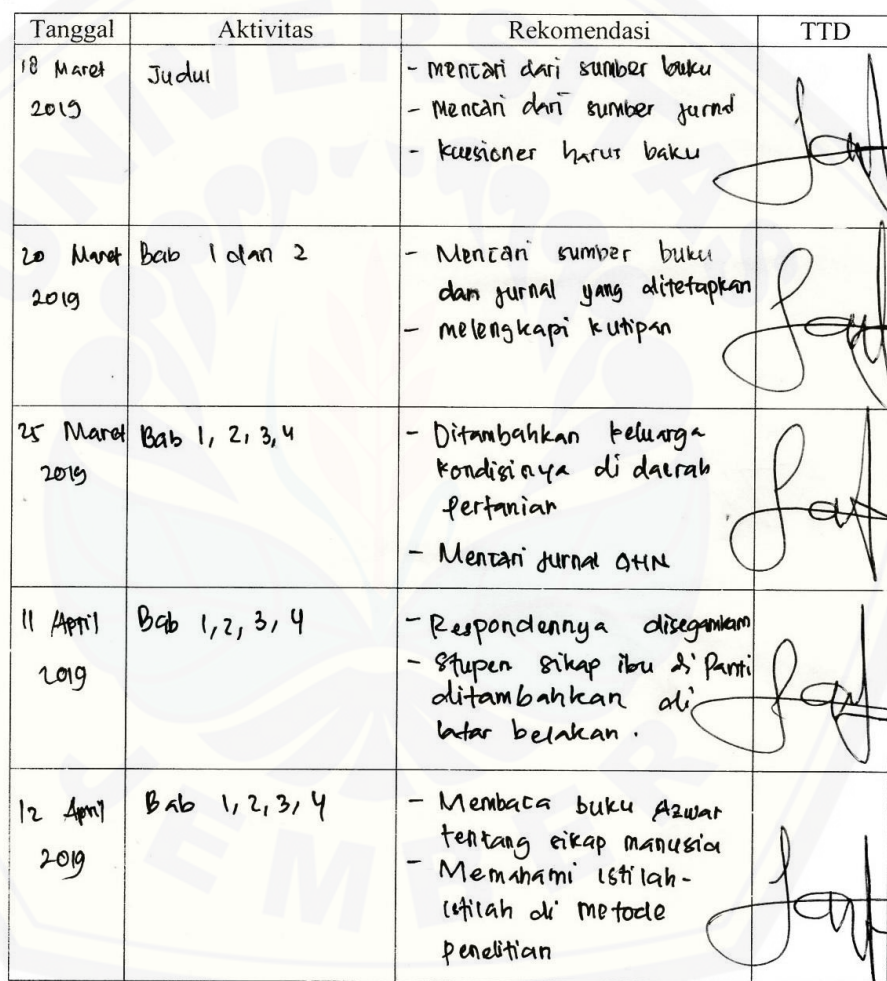 Tanggal Aktivitas Rekomendasi TTD
18 Maret Judul - mencari dari sumber buku
2019 - Mencari dari sumber jurnal
- kuesioner harus baku
20 Maret Bab 1 dan 2 - Mencari sumber buku
2019 dan jurnal yang ditetapkan
- melengkapi kutipan
25 Maret Bab 1, 2, 3, 4 - Ditambahkan keluarga
2019 kondisinya di daerah
pertanian
- Mencari jurnal AHN
11 April Bab 1, 2, 3, 4 - Respondennya
2019 - Stupen sikap ibu di Panti
ditambahkan di
latar belakan.
12 April Bab 1, 2, 3, 4 - Membaca buku Azwar
2019 tentang sikap manusia
- Memahami istilah-
istilah di metode
penelitian
UNIVERSITAS
JEMBER